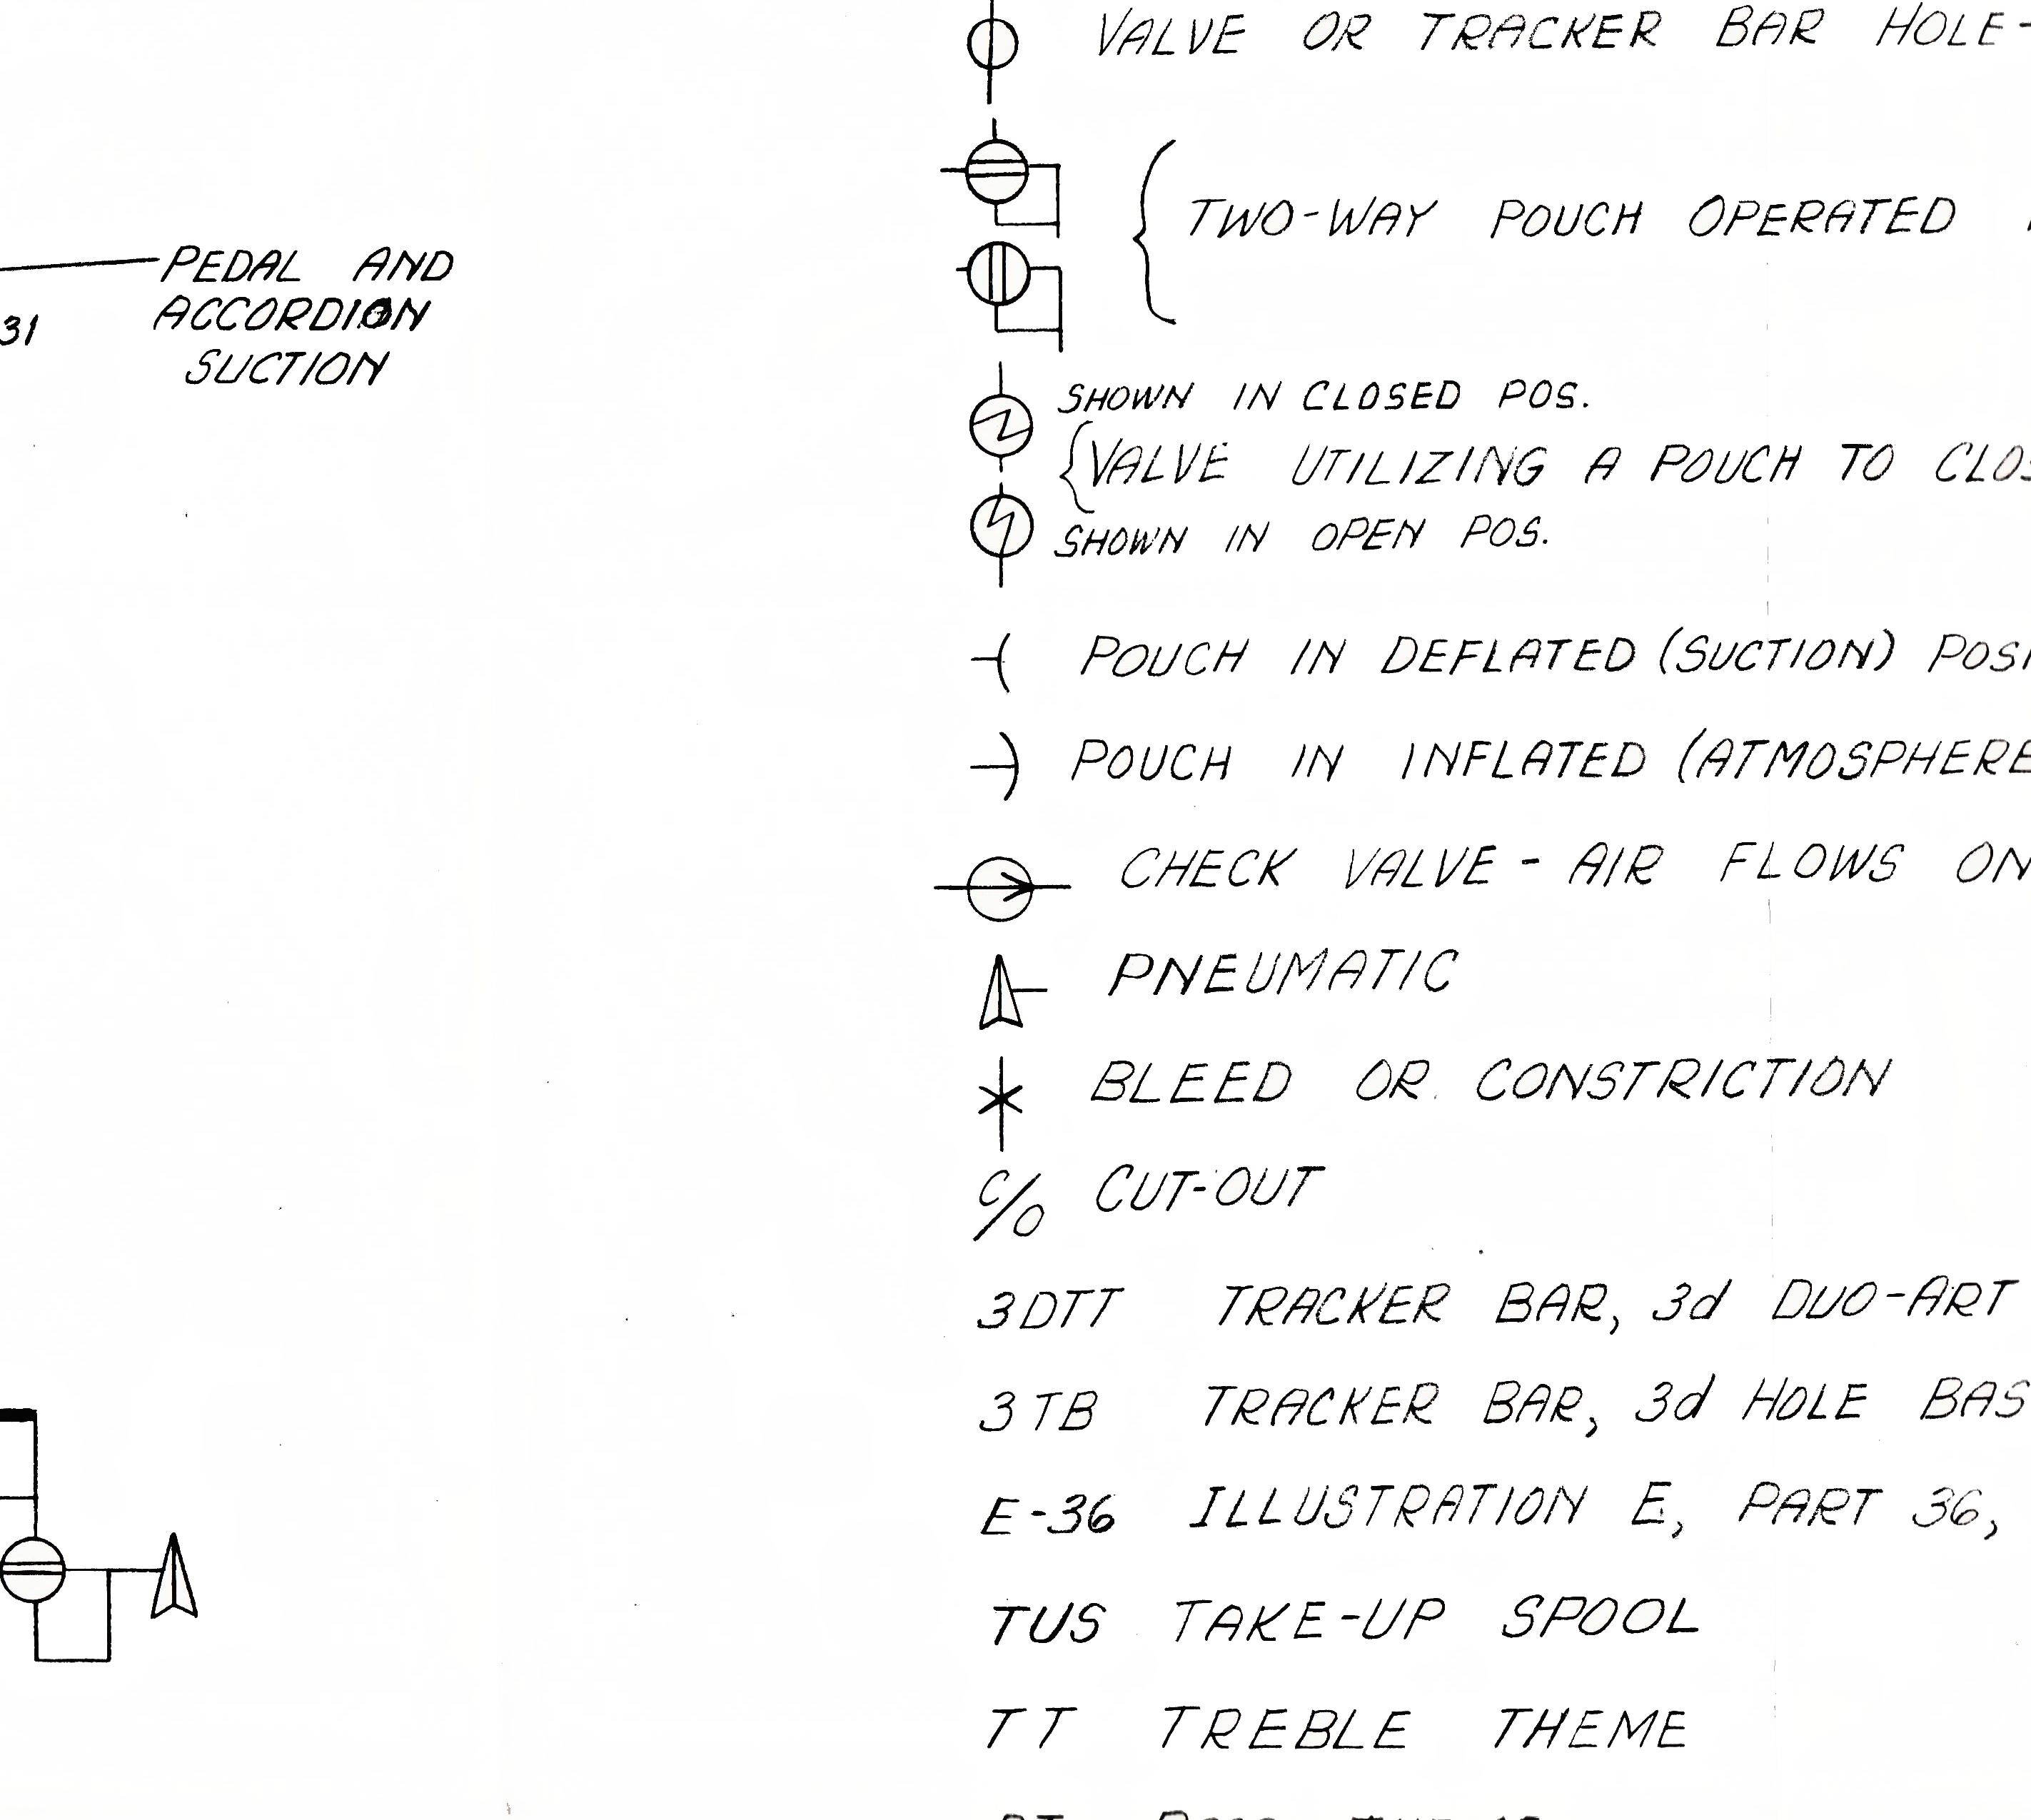 VALVE OR TRACKER BAR HOLE-
TWO-WAY POUCH OPERATED
PEDAL AND
ACCORDION
SUCTION
31
SHOWN IN CLOSED POS.
VALVE UTILIZING A POUCH TO
SHOWN IN OPEN POS.
POUCH IN DEFLATED (SUCTION)
POUCH IN INFLATED (ATMOSPHERE
CHECK VALVE - AIR FLOWS
PNEUMATIC
BLEED OR CONSTRICTION
C/O CUT-OUT
3DTT TRACKER BAR, 3d DUO-ART
3TB TRACKER BAR, 3d HOLE
E-36 ILLUSTRATION E, PART 36,
TUS TAKE-UP SPOOL
TT TREBLE THEME